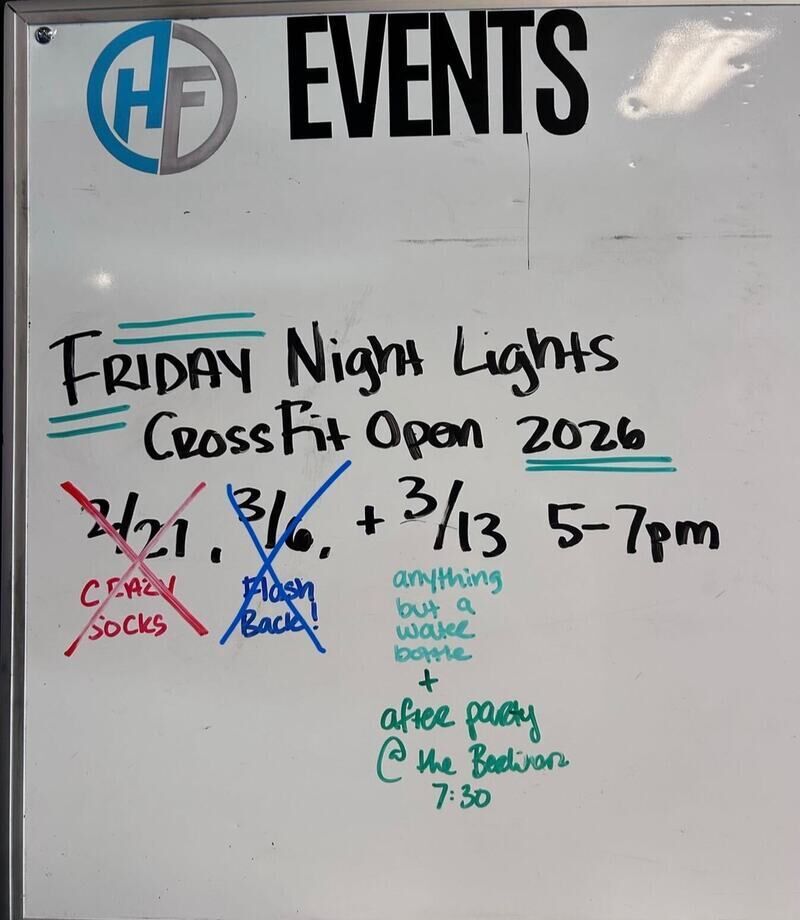 HF EVENTS
FRIDAY Night Lights
CrossFit Open 2026
2/27, 3/6, + 3/13 5-7pm
CRAZY
socks
Flash
Back!
anything
but a
water
bottle
+
after party
@ the
7:30